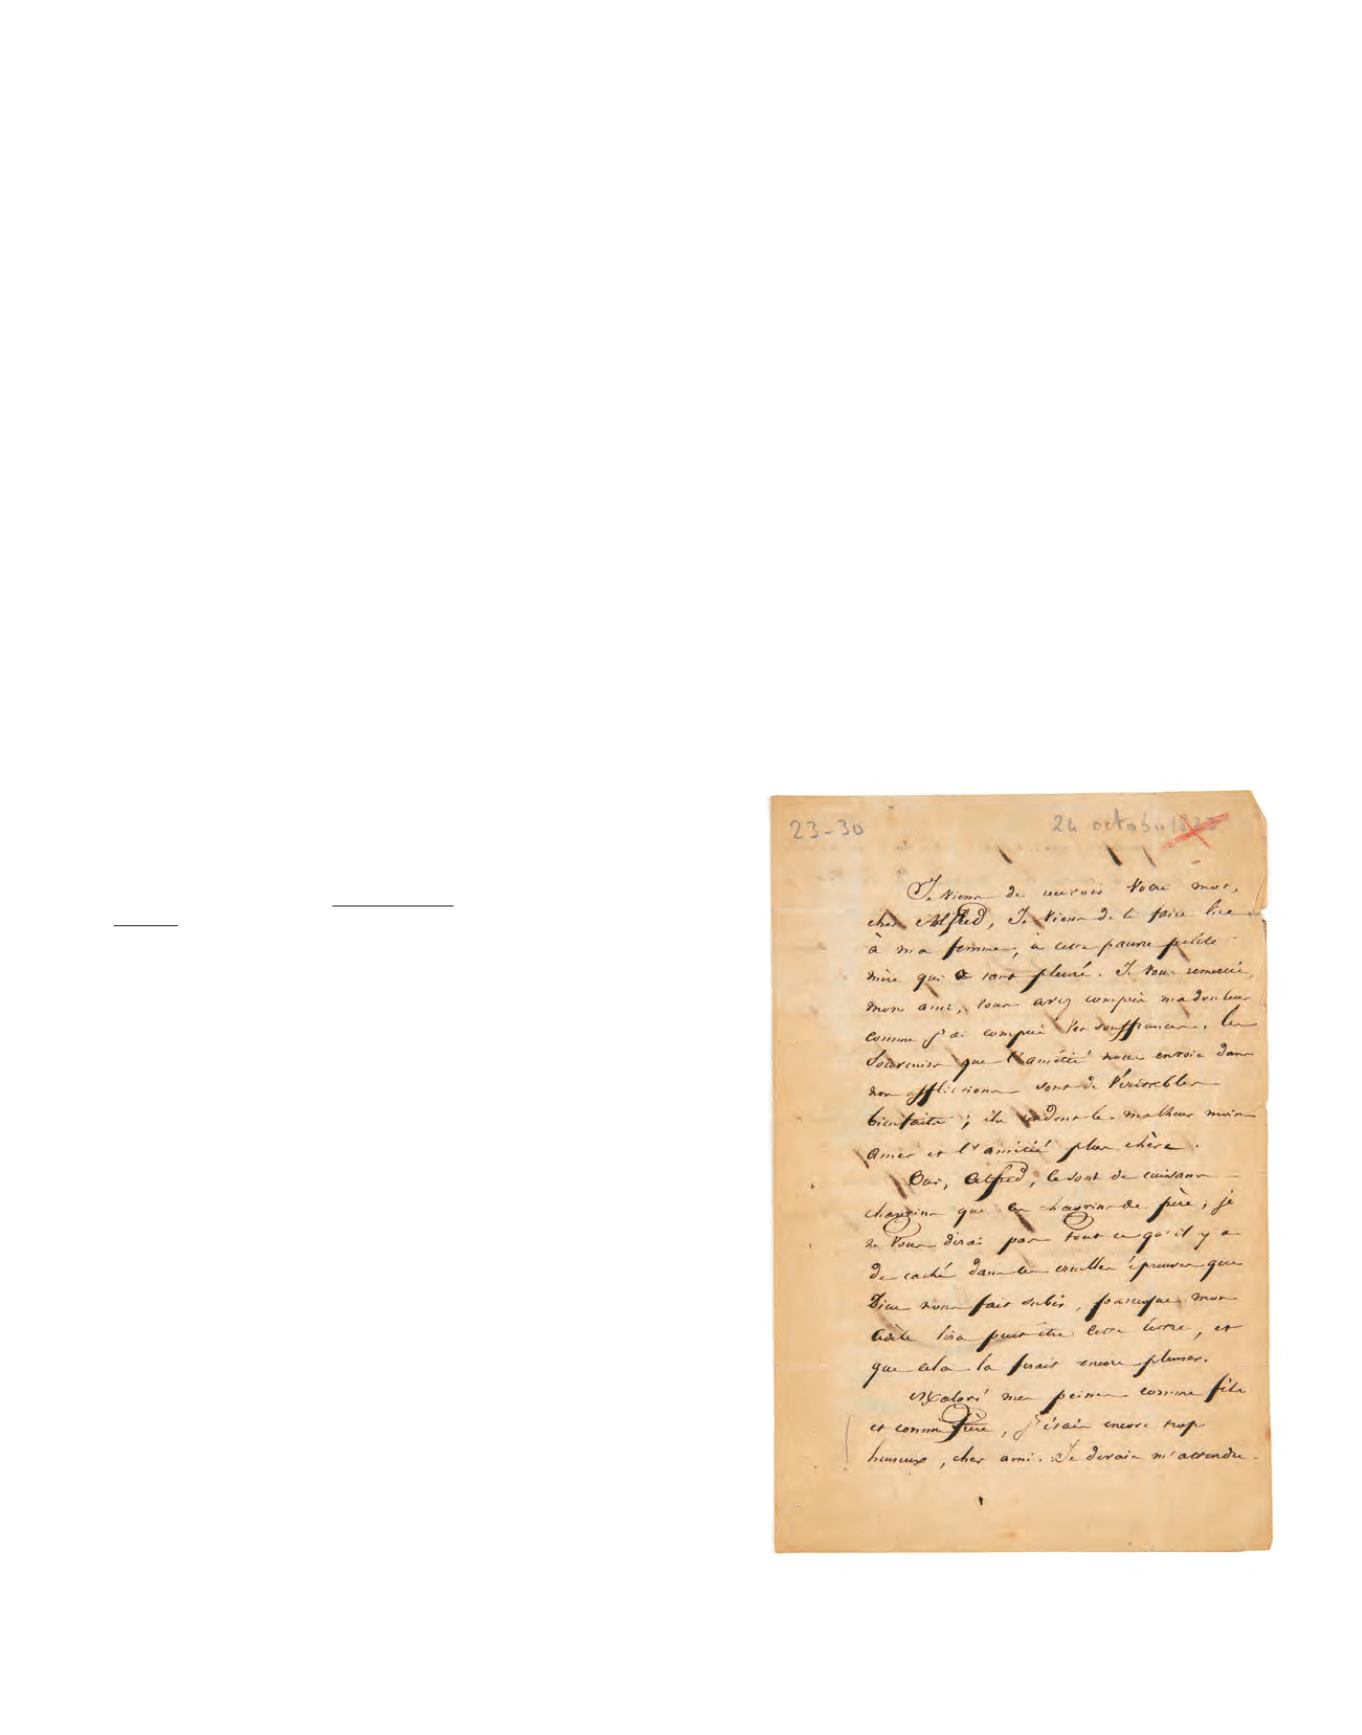 23-30
24 octobre 1823
Je viens de recevoir votre mot,
cher Alfred, Je viens de le faire lire
à ma femme, à cette pauvre petite
mère qui a tant pleuré. Je vous remercie,
mon ami, vous avez compris ma douleur
comme j'ai compris vos souffrances. Les
souvenirs que l'amitié nous envoie dans
nos afflictions sont de véritables
bienfaits ; ils rendent le malheur moins
amer et l'amitié plus chère.
Oui, Alfred, ce sont de cuisans
chagrins que les chagrins de père ; je
ne vous dirai pas tout ce qu'il y a
de caché dans ces cruelles épreuves que
Dieu nous fait subir, parceque mon
Adèle lira peut être cette lettre, et
que cela la ferait encore pleurer.
Malgré mes peines comme fils
et comme Père, j'étais encore trop
heureux, cher ami. Je devais m'attendre